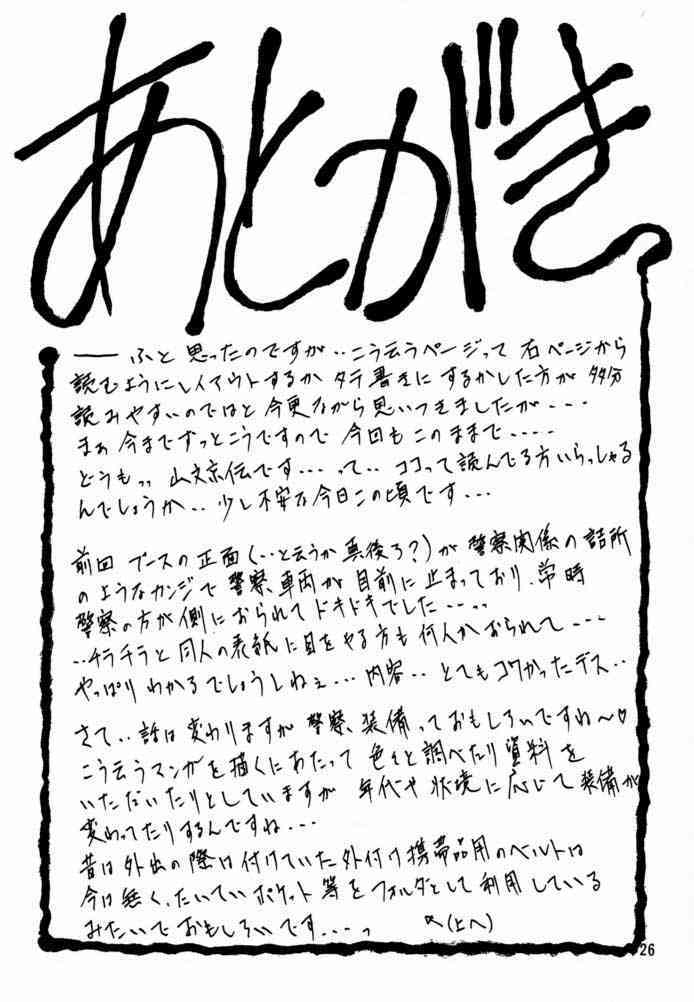 あとがき
── ふと思ったのですが‥こう云うページって右ページから
読むようにレイアウトするかタテ書きにするかした方が多分
読みやすいのではと今更ながら思いつきましたが・・・
まぁ今までずっとこうですので今回もこのままで・・・・
どうもっっ山文京伝です・・・って‥ココって読んでる方いらっしゃる
んでしょうか‥少し不安な今日この頃です・・・
前回ブースの正面(‥と云うか真後ろ?)が警察関係の詰所
のようなカンジで警察車両が目前に止まっており、常時
警察の方が側におられてドキドキでした・・・・
‥チラチラと同人の表紙に目をやる方も何人かおられて・・・
やっぱりわかるでしょうしねぇ・・・内容‥とてもコワかったデス‥
さて‥話は変わりますが警察装備っておもしろいですね〜♡
こう云うマンガを描くにあたって色々と調べたり資料を
いただいたりとしていますが年代や状境に応じて装備が
変わってたりするんですね・・・
昔は外出の際は付けていた外付け携帯品用のベルトは
今は無く、たいていポケット等をフォルダとして利用している
みたいでおもしろいです・・・・っ ↖(上へ)
26